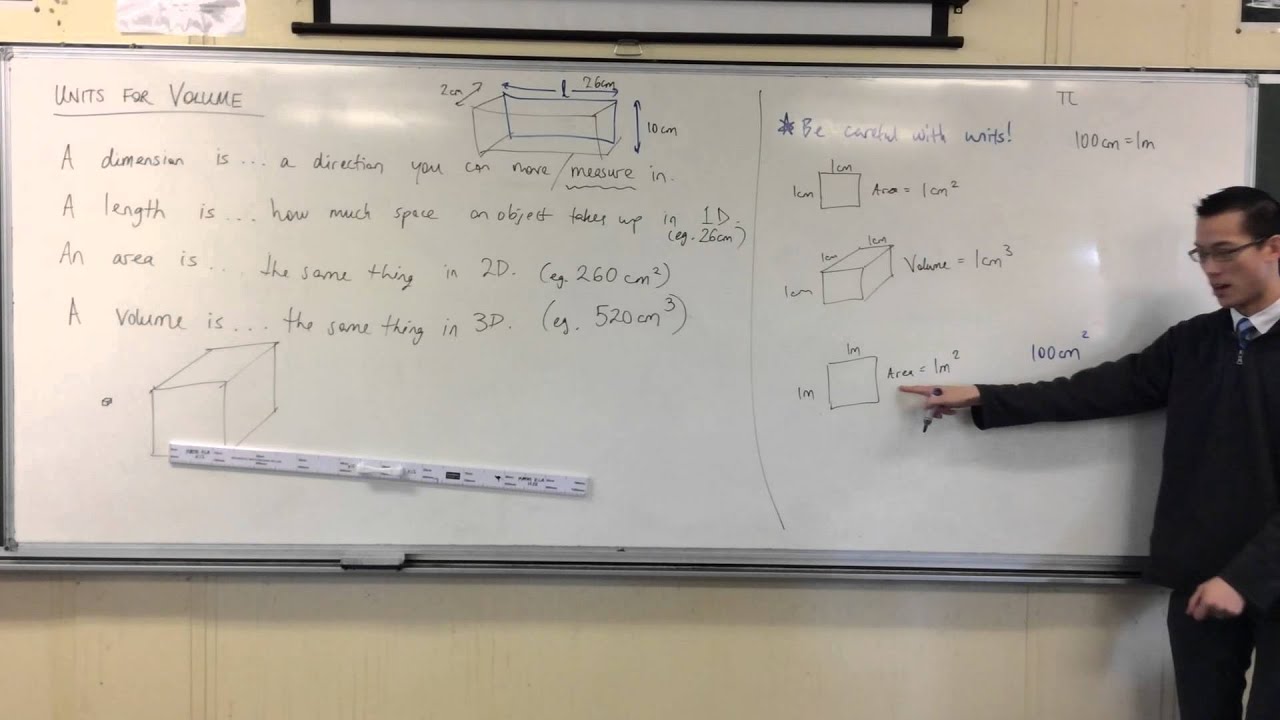 UNITS FOR VOLUME
2cm
l
26cm
10cm
A dimension is ... a direction you can move/measure in.
A length is ... how much space an object takes up in 1D.
(eg. 26cm)
An area is ... the same thing in 2D. (eg. 260cm²)
A volume is ... the same thing in 3D. (eg. 520cm³)
π
★ Be careful with units!
100cm = 1m
1cm
1cm
Area = 1cm²
1cm
1cm
1cm
Volume = 1cm³
1m
1m
Area = 1m²
100cm²